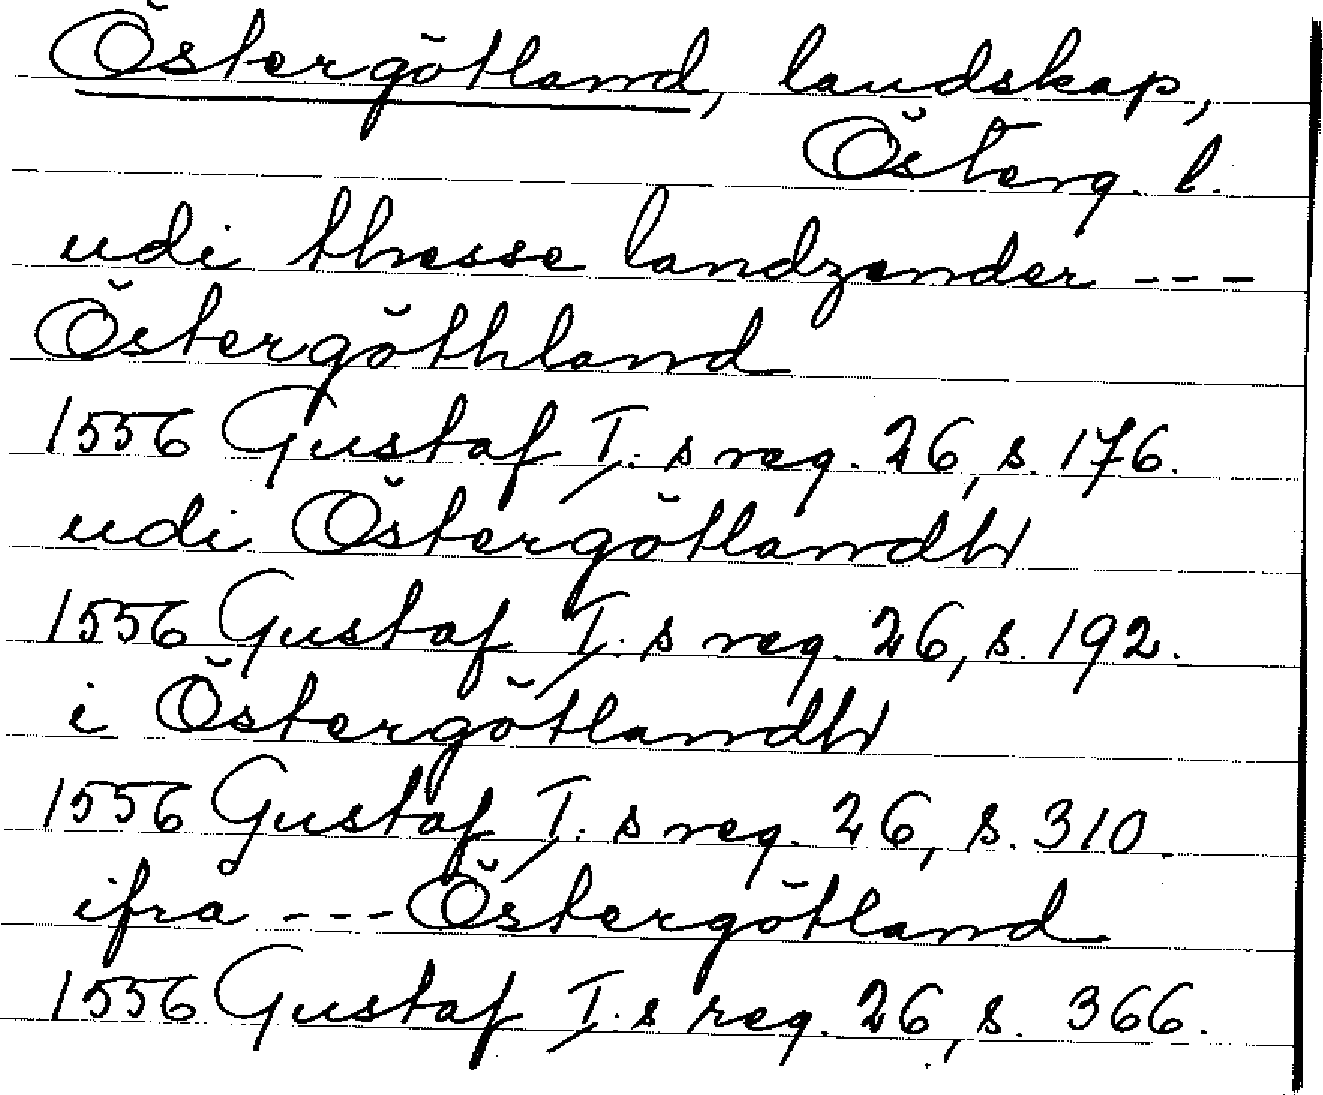 Östergötland, landskap,
Österg. l.
udi thesse landzender ---
Östergöthland
1556 Gustaf I:s reg. 26, s. 176.
udi Östergötlandh
1556 Gustaf I:s reg. 26, s. 192.
i Östergötlandh
1556 Gustaf I:s reg. 26, s. 310
ifrå --- Östergötland
1556 Gustaf I:s reg. 26, s. 366.